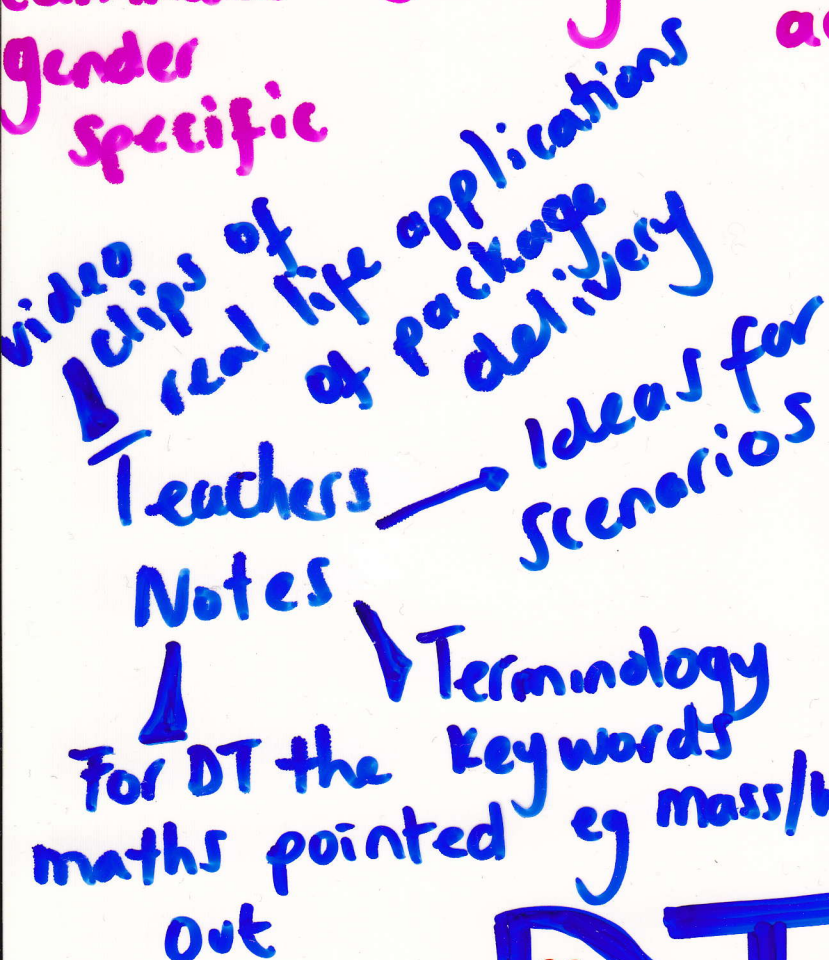 gender
specific
video
clips of
real life applications
of package
delivery
Teachers
Notes
Ideas for
scenarios
Terminology
keywords
eg mass/
For DT the
maths pointed
out
DT